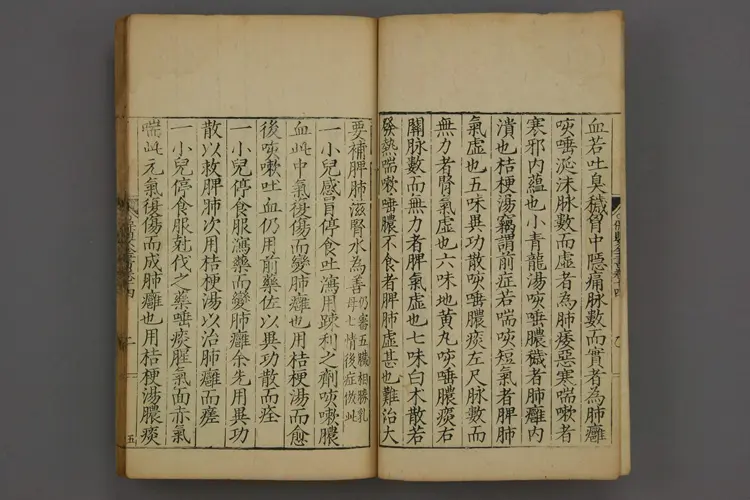 血若吐臭穢胷中隱痛脉數而實者為肺癰
咳唾涎沫脉數而虛者為肺痿惡寒喘嗽者
寒邪內蘊也小青龍湯咳唾膿穢者肺癰內
潰也桔梗湯竊謂前症若喘咳短氣者脾肺
氣虛也五味異功散咳唾膿痰左尺脉數而
無力者腎氣虛也六味地黄丸咳唾膿痰右
關脉數而無力者脾氣虛也七味白术散若
發熱喘嗽唾膿不食者脾肺虛甚也難治大
要補脾肺滋腎水為善仍審五臟相勝乳
母七情後症倣此
一小兒感冐停食吐瀉用踈利之劑咳嗽膿
血此中氣復傷而變肺癰也用桔梗湯而愈
後咳嗽吐血仍用前藥佐以異功散而痊
一小兒停食服瀉藥而變肺癰余先用異功
散以救脾肺次用桔梗湯以治肺癰而瘥
一小兒停食服尅伐之藥唾痰腥氣面赤氣
喘此元氣復傷而成肺癰也用桔梗湯膿痰
五